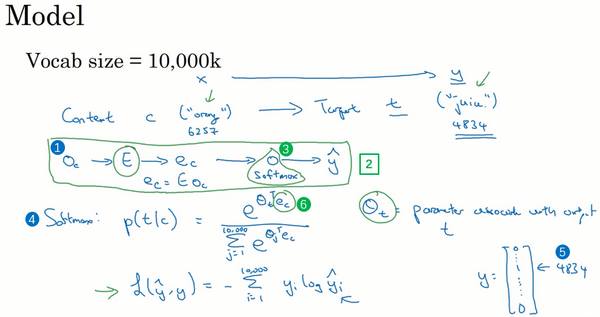 Model
Vocab size = 10,000k
x → y
Content c ("orang") → Target t ("juice")
6257 4834
1 3
O_c → E → e_c → O → ŷ 2
e_c = E O_c softmax
4 Softmax: p(t|c) = e^{θ_t^T e_c} / Σ_{j=1}^{10,000} e^{θ_j^T e_c} 6 θ_t = parameter associate with output t
→ L(ŷ, y) = - Σ_{i=1}^{10,000} y_i log ŷ_i
y = [0 ⋮ 1 ⋮ 0] ← 4834 5